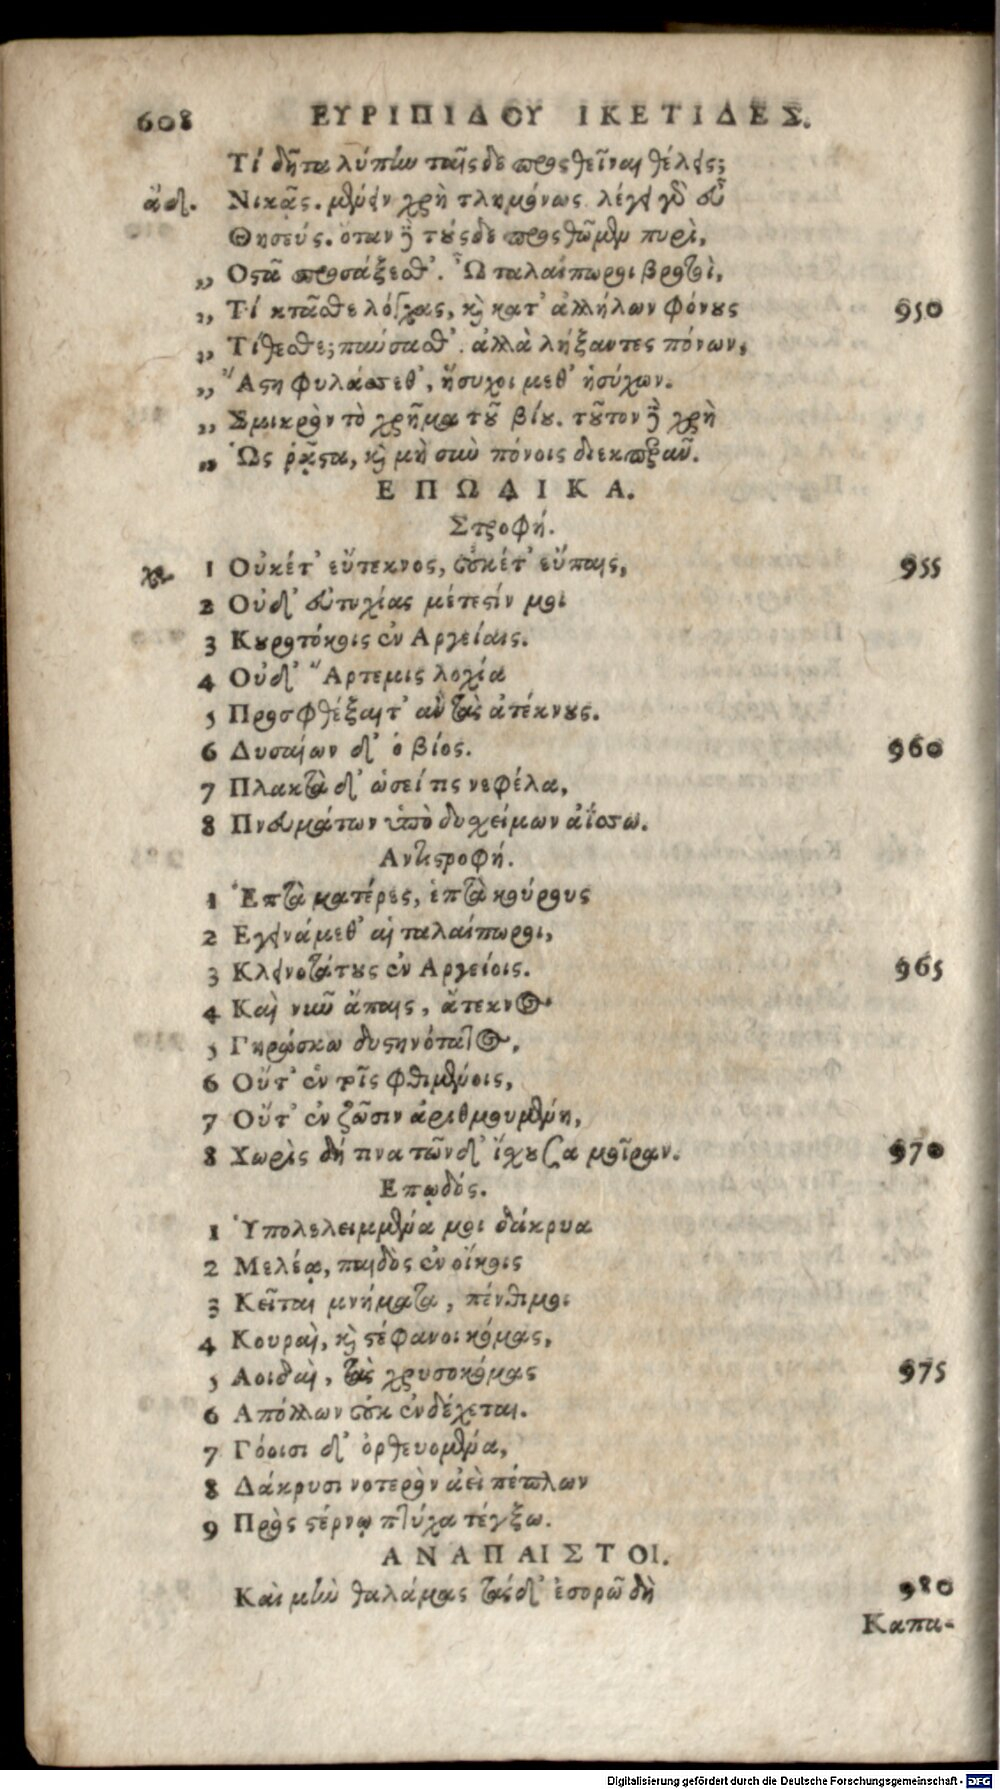 608 ΕΥΡΙΠΙΔΟΥ ΙΚΕΤΙΔΕΣ.
Τί δῆτα λύπην ταῖσδε προσθεῖναι θέλεις;
ἄδ. Νικᾷς. μένειν χρὴ τλημόνως. λέγει γὸ εὖ
Θησεύς. ὅταν ἢ τούσδε προσθῶμεν πυρὶ,
„ Οστᾶ προσάξεσθ'. Ὦ ταλαίπωροι βροτοὶ,
„ Τί κτᾶσθε λόγχας, κὶ κατ' ἀλλήλων φόνους 950
„ Τίθεσθε; παύσασθ'. ἀλλὰ λήξαντες πόνων,
„ Ἄστη φυλάσσεθ', ἥσυχοι μεθ' ἡσύχων.
„ Σμικρὸν τὸ χρῆμα τοῦ βίου. τοῦτον ἢ χρὴ
„ Ὡς ρᾷστα, κὶ μὴ σὺν πόνοις διεκπερᾶν.
ΕΠΩΔΙΚΑ.
Στροφή.
χο 1 Οὐκέτ' εὔτεκνος, οὐκέτ' εὔπαις, 955
2 Οὐδ' εὐτυχίας μέτεστίν μοι
3 Κουροτόκοις ἐν Αργείαις.
4 Οὐδ' Ἄρτεμις λοχία
5 Προσφθέξαιτ' ἂν τὰς ἀτέκνους.
6 Δυσαίων δ' ὁ βίος. 960
7 Πλακτὰ δ' ὡσεί τις νεφέλα,
8 Πνευμάτων ὑπὸ δυχείμων ἀΐσσω.
Αντιστροφή.
1 Ἑπτὰ ματέρες, ἑπτὰ κούρους
2 Εγεινάμεθ' αἱ ταλαίπωροι,
3 Κλεινοτάτους ἐν Αργείοις. 965
4 Καὶ νῦν ἄπαις, ἄτεκνος
5 Γηράσκω δυστηνότατος,
6 Οὔτ' ἐν τοῖς φθιμένοις,
7 Οὔτ' ἐν ζῶσιν ἀριθμουμένη,
8 Χωρὶς δή τινα τῶνδ' ἔχουσα μοῖραν. 970
Επῳδός.
1 Ὑπολελειμμένα μοι δάκρυα
2 Μελέᾳ, παιδὸς ἐν οἴκοις
3 Κεῖται μνήματα, πένθιμοι
4 Κουραὶ, κὶ στέφανοι κόμας,
5 Αοιδαὶ, τὰς χρυσοκόμας 975
6 Απόλλων οὐκ ἐνδέχεται.
7 Γόοισι δ' ὀρθευομένα,
8 Δάκρυσι νοτερὸν ἀεὶ πέπλων
9 Πρὸς στέρνῳ πτύχα τέγξω.
ΑΝΑΠΑΙΣΤΟΙ.
Καὶ μὴν θαλάμας τάσδ' ἐσορῶ δὴ 980
Καπα-
Digitalisierung gefördert durch die Deutsche Forschungsgemeinschaft - DFG